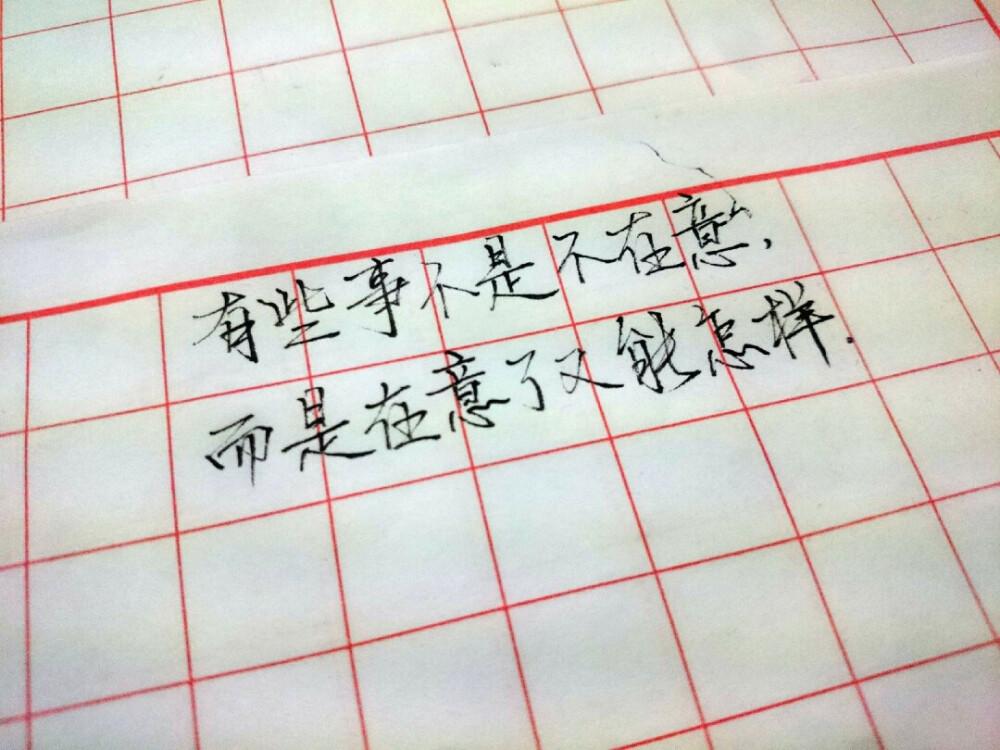 有些事不是不在意,
而是在意了又能怎样.